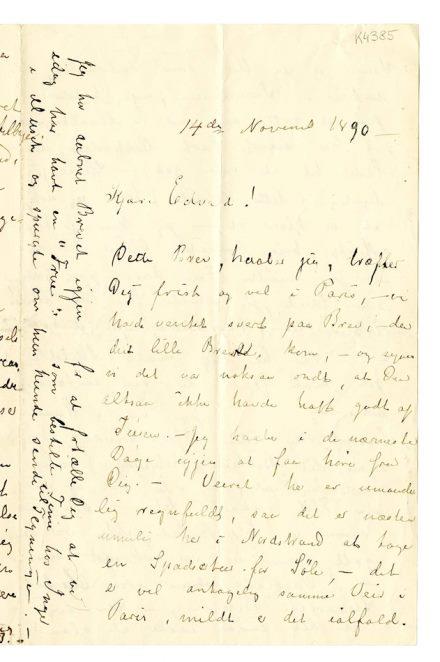 K4385
14de Novemb 1890 —
Kjære Edvard!
Dette Brev, haaber jeg, træffer
Dig frisk og vel i Paris, — vi
havde ventet svært paa Brev, — da
dit lille Brev kom, — og synes
vi det var noksaa ondt, at Du
altsaa ikke havde haft godt af
Turen. — Jeg haaber i de nærmeste
Dage igjen at faa høre fra
Dig. — Veiret her er umaade-
lig regnfuldt, saa det er næsten
umuli her i Nordstrand at tage
en Spadsetur for Søle, — det
er vel antagelig samme Veir i
Paris, mildt er det ialfald.
Jeg har aabnet Brevet igjen for at fortælle Dig at vi
idag har havt en "Frue" som bestilte Time hos Inger
i Musik og spurgte om hun kunde sende Tegninger